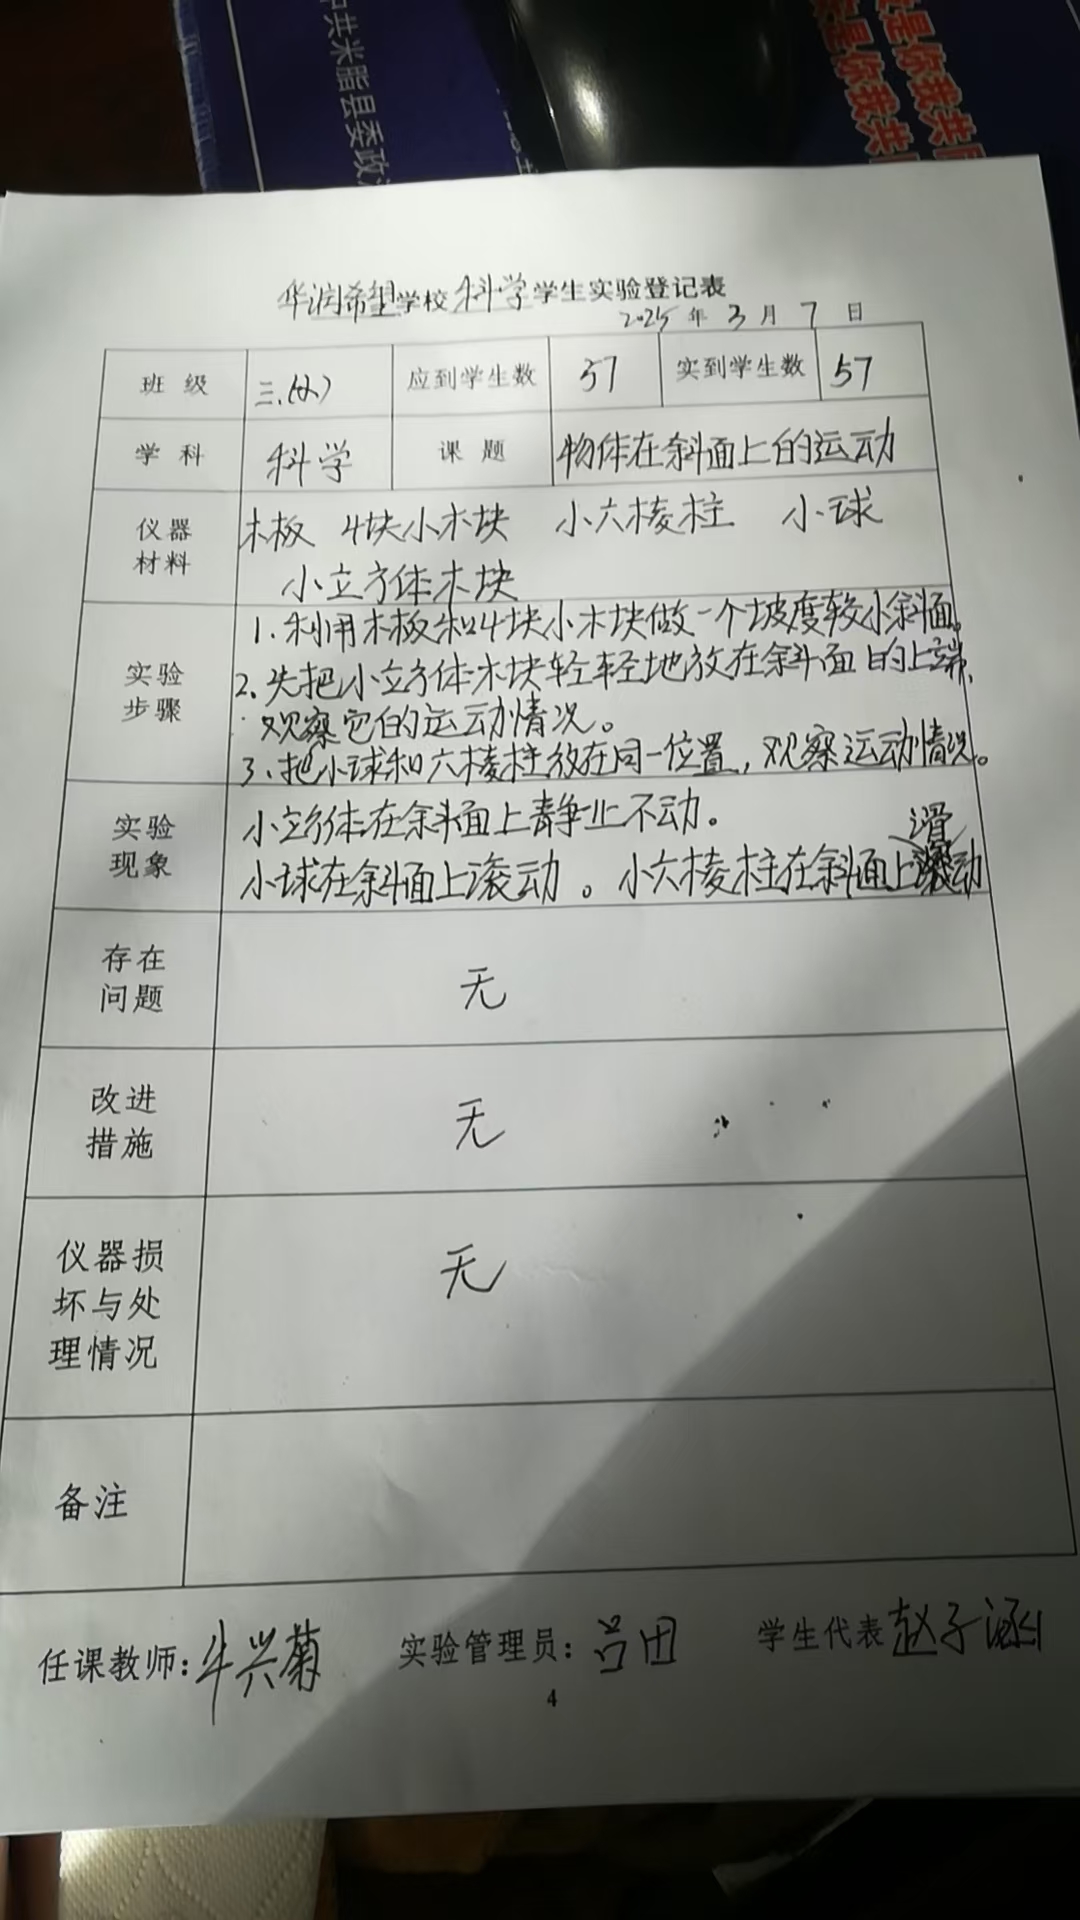 中共米脂县委政
是你我共同
是你我共同
华润希望学校科学学生实验登记表
2025年3月7日
班级 三.(4) 应到学生数 57 实到学生数 57
学科 科学 课题 物体在斜面上的运动
仪器材料 木板 4块小木块 小六棱柱 小球
小立方体木块
实验步骤 1.利用木板和4块小木块做一个坡度较小斜面。
2.先把小立方体木块轻轻地放在斜面的上端,
观察它的运动情况。
3.把小球和六棱柱放在同一位置,观察运动情况。
实验现象 小立方体在斜面上静止不动。
小球在斜面上滚动。小六棱柱在斜面上滑动
存在问题 无
改进措施 无
仪器损坏与处理情况 无
备注
任课教师:牛兴菊 实验管理员: 学生代表赵子涵
4